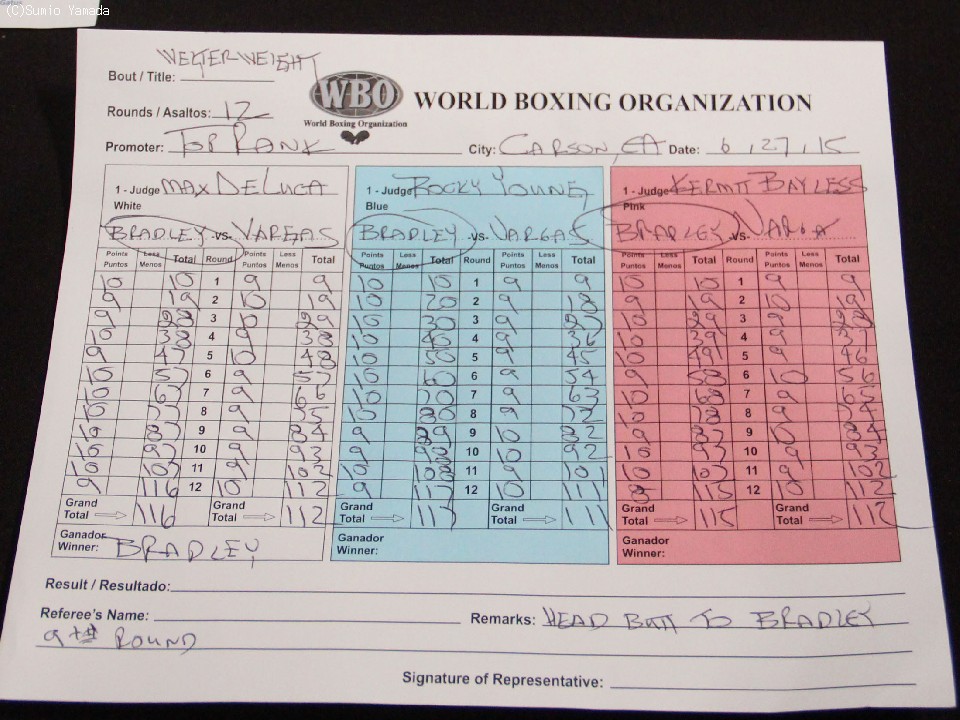 (C)Sumio Yamada
WELTER-WEIGHT
Bout / Title:
WBO WORLD BOXING ORGANIZATION
World Boxing Organization
Rounds / Asaltos: 12
Promoter: TOP RANK City: CARSON, CA Date: 6, 27, 15
1 - Judge MAX DELUCA 1 - Judge ROCKY YOUNG 1 - Judge KERMIT BAYLESS
White Blue Pink
BRADLEY -vs- VARGAS BRADLEY -vs- VARGAS BRADLEY -vs- VARGA
Points Less Total Round Points Less Total Points Less Total Round Points Less Total Points Less Total Round Points Less Total
Puntos Menos Puntos Menos Puntos Menos Puntos Menos Puntos Menos Puntos Menos
10 10 1 9 9 10 10 1 9 9 10 10 1 9 9
9 19 2 10 19 10 20 2 9 18 9 19 2 10 19
9 28 3 10 29 10 30 3 9 27 10 29 3 9 28
10 38 4 9 38 10 40 4 9 36 10 39 4 9 37
9 47 5 10 48 10 50 5 9 45 10 49 5 9 46
10 57 6 9 57 10 60 6 9 54 9 58 6 10 56
10 67 7 9 66 10 70 7 9 63 10 68 7 9 65
10 77 8 9 75 10 80 8 9 72 10 78 8 9 74
10 87 9 9 84 9 89 9 10 82 9 87 9 10 84
10 97 10 9 93 9 98 10 10 92 10 97 10 9 93
10 107 11 9 102 10 108 11 9 101 10 107 11 9 102
9 116 12 10 112 9 117 12 10 111 8 115 12 10 112
Grand Total 116 Grand Total 112 Grand Total 117 Grand Total 111 Grand Total 115 Grand Total 112
Ganador Ganador Ganador
Winner: BRADLEY Winner: Winner:
Result / Resultado:
Referee's Name: Remarks: HEAD BUTT TO BRADLEY
9TH ROUND
Signature of Representative: